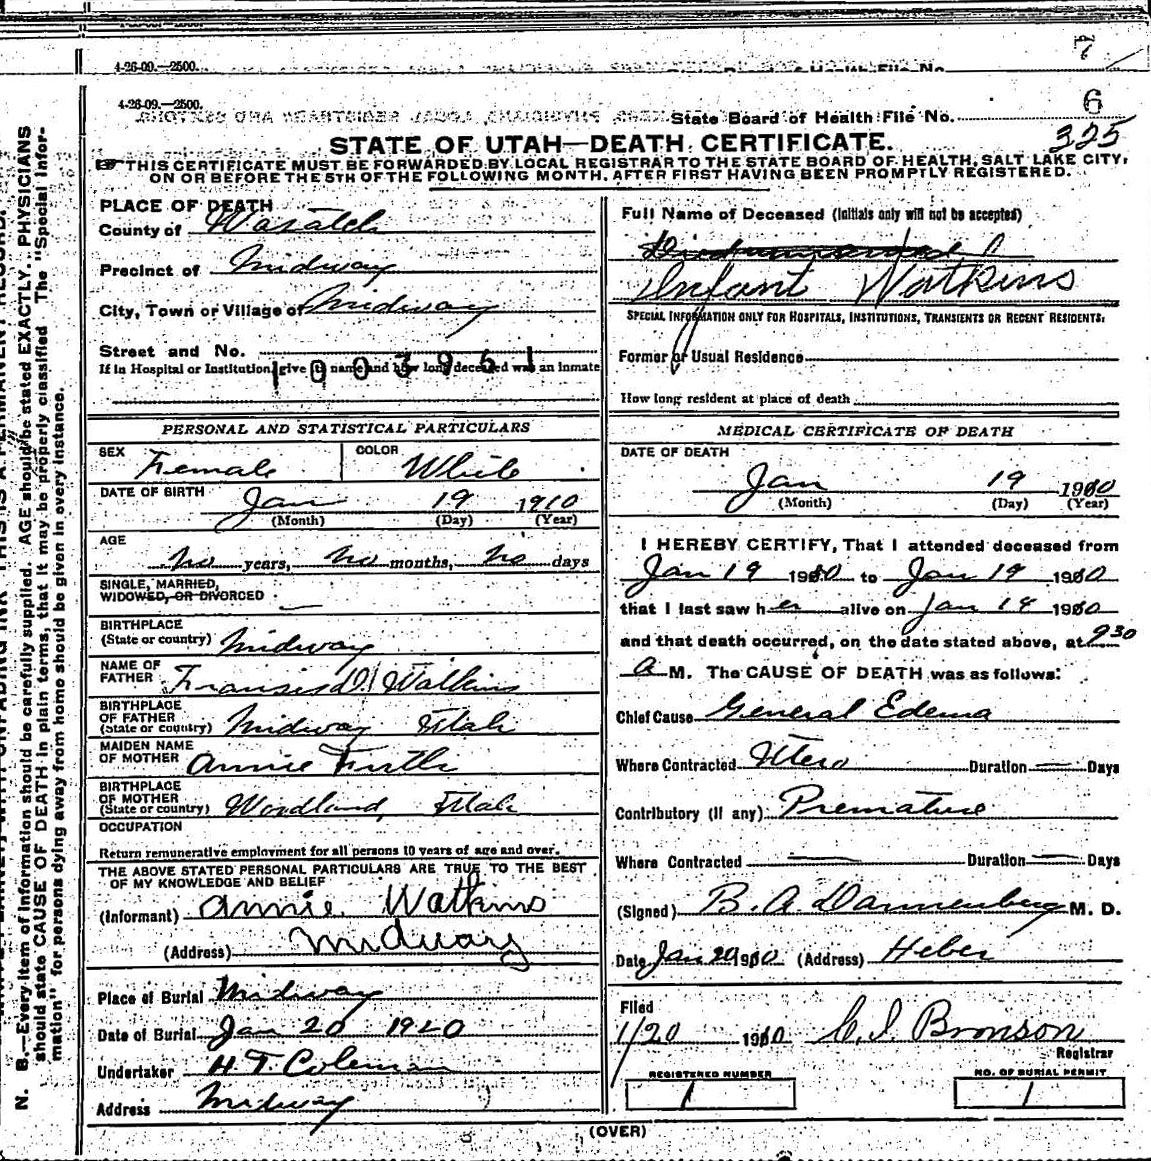 7
4-26-09.—2500.
4-26-09.—2500.
State Board of Health File No. 6
325
STATE OF UTAH—DEATH CERTIFICATE.
THIS CERTIFICATE MUST BE FORWARDED BY LOCAL REGISTRAR TO THE STATE BOARD OF HEALTH, SALT LAKE CITY,
ON OR BEFORE THE 5TH OF THE FOLLOWING MONTH, AFTER FIRST HAVING BEEN PROMPTLY REGISTERED.
PLACE OF DEATH
County of Wasatch
Precinct of Midway
City, Town or Village of Midway
Street and No.
1003961
If in Hospital or Institution, give its name and how long deceased was an inmate
PERSONAL AND STATISTICAL PARTICULARS
SEX Female COLOR White
DATE OF BIRTH Jan 19 1910
(Month) (Day) (Year)
AGE
no years, no months, no days
SINGLE, MARRIED,
WIDOWED, OR DIVORCED —
BIRTHPLACE
(State or country) Midway
NAME OF
FATHER Fransis D. Watkins
BIRTHPLACE
OF FATHER
(State or country) Midway Utah
MAIDEN NAME
OF MOTHER Annie Firth
BIRTHPLACE
OF MOTHER
(State or country) Woodland, Utah
OCCUPATION
Return remunerative employment for all persons 10 years of age and over.
THE ABOVE STATED PERSONAL PARTICULARS ARE TRUE TO THE BEST
OF MY KNOWLEDGE AND BELIEF
(Informant) Annie Watkins
(Address) Midway
Place of Burial Midway
Date of Burial Jan 20 1910
Undertaker H. T. Coleman
Address Midway
Full Name of Deceased (Initials only will not be accepted)
Infant Watkins
SPECIAL INFORMATION ONLY FOR HOSPITALS, INSTITUTIONS, TRANSIENTS OR RECENT RESIDENTS:
Former or Usual Residence
How long resident at place of death
MEDICAL CERTIFICATE OF DEATH
DATE OF DEATH
Jan 19 1910
(Month) (Day) (Year)
I HEREBY CERTIFY, That I attended deceased from
Jan 19 1910 to Jan 19 1910
that I last saw her alive on Jan 19 1910
and that death occurred, on the date stated above, at 930
a M. The CAUSE OF DEATH was as follows:
Chief Cause General Edema
Where Contracted Utero Duration — Days
Contributory (if any) Premature
Where Contracted — Duration — Days
(Signed) B. A. Dannenberg M. D.
Date Jan 20 1910 (Address) Heber
Filed
1/20 1910 C. I. Bronson
Registrar
REGISTERED NUMBER
1
NO. OF BURIAL PERMIT
1
(OVER)
N. B.—Every item of information should be carefully supplied. AGE should be stated EXACTLY. PHYSICIANS
should state CAUSE OF DEATH in plain terms, that it may be properly classified. The "Special Infor-
mation" for persons dying away from home should be given in every instance.